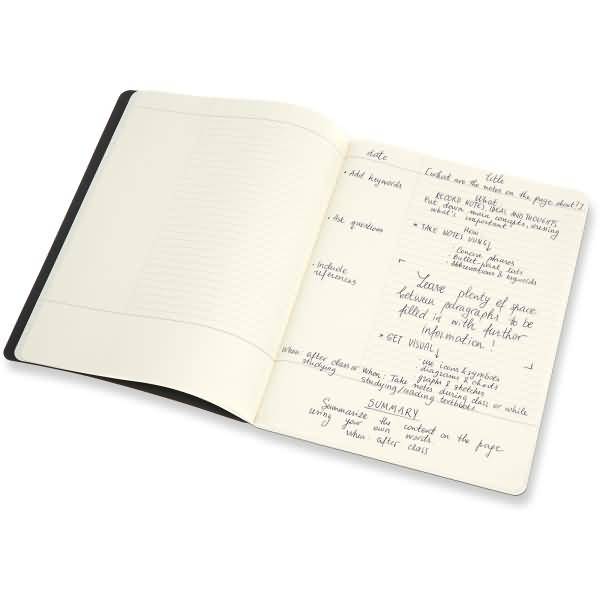 date
Title
[what are the notes on the page about?]
• Add keywords
What
RECORD NOTES, IDEAS AND THOUGHTS
Put down main concepts, dressing
what's important
• Ask questions
How
* TAKE NOTES USING ↓
· Concise phrases
· Bullet-point lists
· Abbreviations & keywords
· Include
references
Leave plenty of space
between paragraphs to be
filled in with further
information!
* GET VISUAL ↓
· use icons & symbols
· diagrams & charts
· graphs & sketches
When: after class or
studying
When: Take notes during class or while
studying/reading textbooks
SUMMARY
Summarize the content on the page
using your own words
When: after class